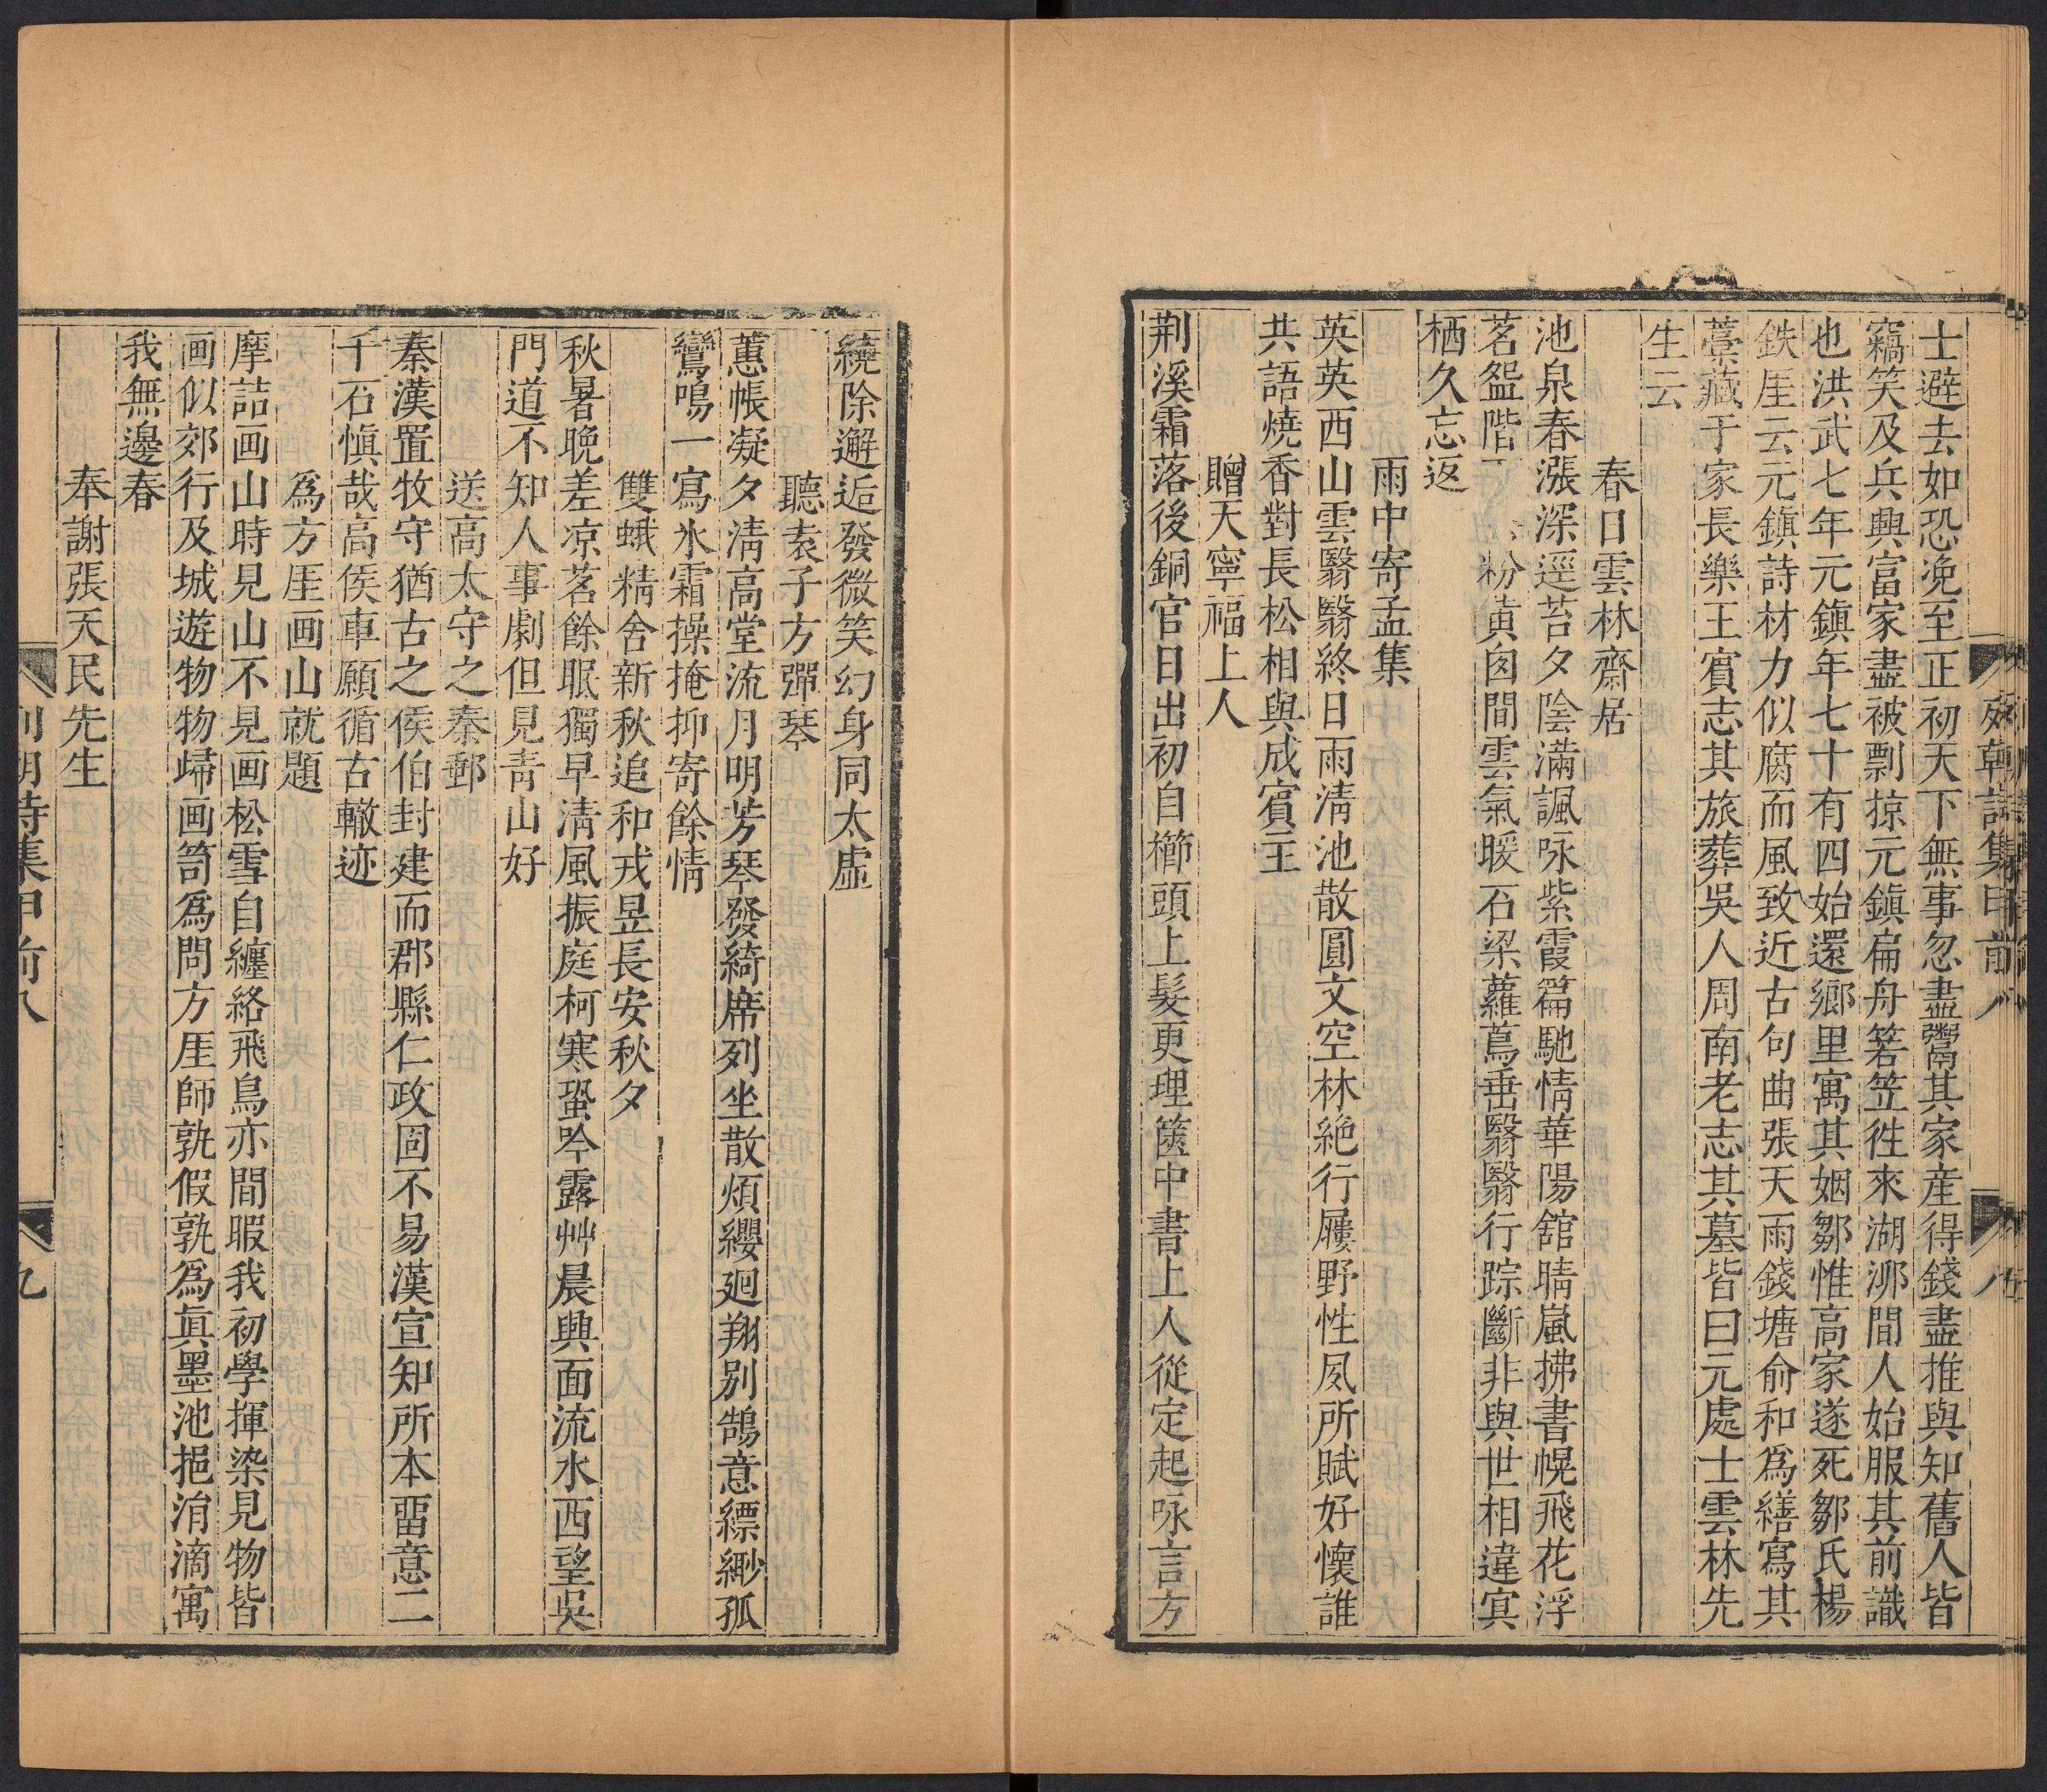 列朝詩集甲前八
八
士避去如恐凂至正初天下無事忽盡鬻其家産得錢盡推與知舊人皆
竊笑及兵興富家盡被剽掠元鎮扁舟箬笠徃來湖泖間人始服其前識
也洪武七年元鎮年七十有四始還鄉里寓其姻鄒惟高家遂死鄒氏楊
鉄厓云元鎮詩材力似腐而風致近古句曲張天雨錢塘俞和爲繕寫其
藁藏于家長樂王賓志其旅葬吳人周南老志其墓皆曰元處士雲林先
生云
春日雲林齋居
池泉春漲深逕苔夕陰滿諷咏紫霞篇馳情華陽舘晴嵐拂書幌飛花浮
茗盌階下粉黄囱間雲氣暖石梁蘿蔦垂翳翳行踪斷非與世相違㝠
栖久忘返
雨中寄孟集
英英西山雲翳翳終日雨淸池散圓文空林絶行屨野性夙所賦好懷誰
共語燒香對長松相與成賓主
贈天寧福上人
荆溪霜落後銅官日出初自櫛頭上髮更理篋中書上人從定起咏言方
繞除邂逅發微笑幻身同太虛
聽袁子方彈琴
蕙帳凝夕淸高堂流月明芳琴發綺席列坐散煩纓廻翔别鵠意縹緲孤
鸞鳴一寫氷霜操掩抑寄餘情
雙蛾精舍新秋追和戎昱長安秋夕
秋暑晩差凉茗餘眠獨早淸風振庭柯寒蛩吟露艸晨興面流水西望吳
門道不知人事劇但見靑山好
送高太守之秦郵
秦漢置牧守猶古之侯伯封建而郡縣仁政固不易漢宣知所本畱意二
千石愼哉高侯車願循古轍迹
爲方厓画山就題
摩詰画山時見山不見画松雪自纏絡飛鳥亦間暇我初學揮染見物皆
画似郊行及城遊物物歸画笥爲問方厓師孰假孰爲眞墨池挹涓滴寓
我無邊春
奉謝張天民先生
列朝詩集甲前八
九